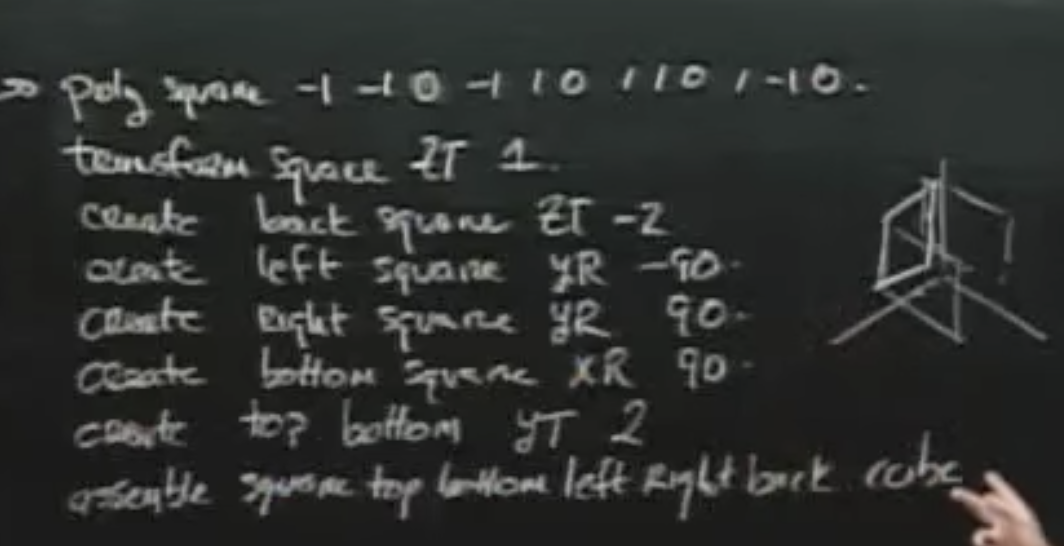 poly square -1 -1 0 -1 1 0 1 1 0 1 -1 0.
transform square ZT 1.
create back square ZT -2
create left square YR -90.
create Right square YR 90.
create bottom square XR 90.
create top bottom YT 2
assemble square top bottom left Right back cube